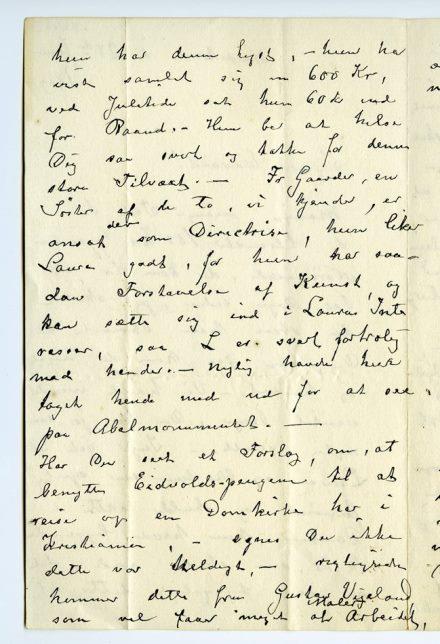 hun har denne Lyst, – hun har
vist samlet sig en 600 Kr,
ved Juletide sat hun 60 kr ind
for Raand. – Hun be at hilse
Dig saa svert og takke for denne
store Tilvæxt. – Fr Gaarder, en
Søster af de To, vi kjender, er
der
ansat som Directrise, hun liker
Laura godt, for hun har saa-
dan Forstaaelse af Kunst, og
kan sætte sig ind i Lauras Inte
resser, saa L er svert fortrolig
med hende. – Nylig havde hun
taget hende med ud for at see
paa Abelmonumentet. –
Har Du seet et Forslag, om, at
benytte Eidvolds-pengene til at
reise op en Domkirke her i
Kristiania, – synes Du ikke
dette var heldigt, –
kommer dette fra Gustav Vigeland
som vel faaer meget af Arbeidet,